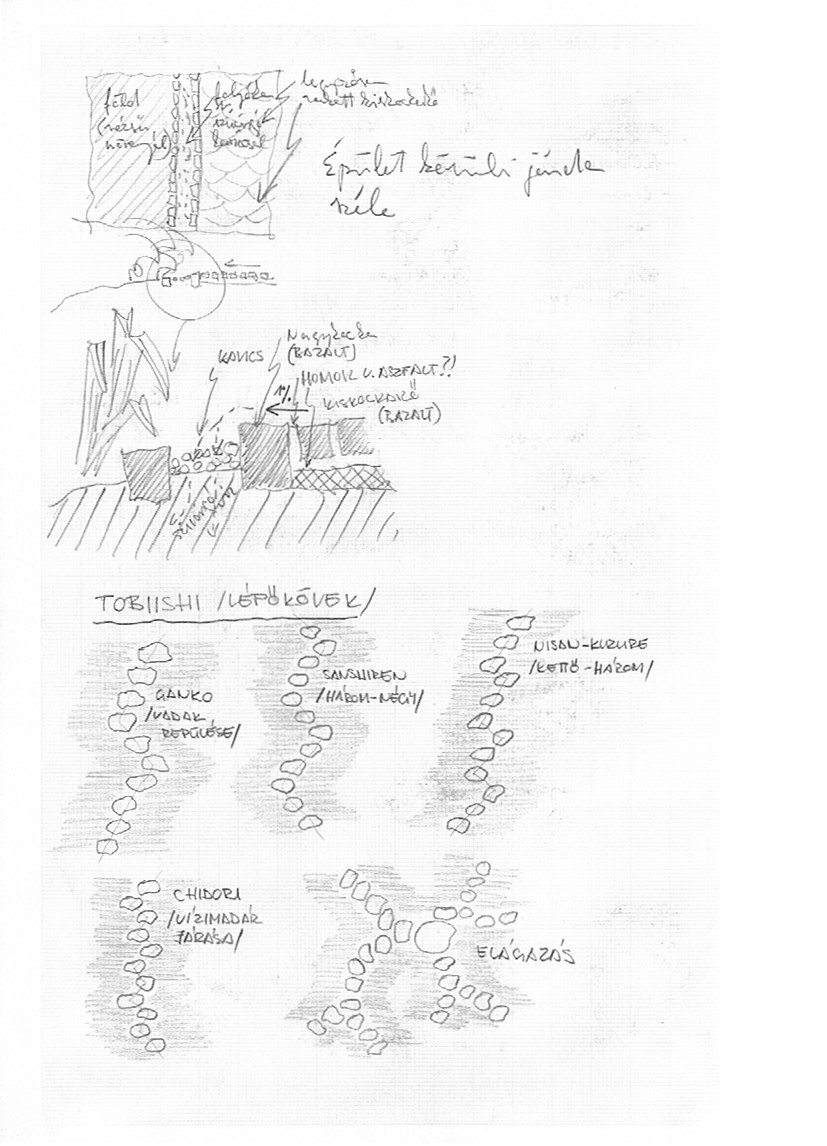 föld
(rézsű
növényi)
folyóka
legyezősen
rakott kiskockakő
Épület körüli járda
széle
KAVICS
Nagykocka
(BAZALT)
HOMOK V. ASZFALT?!
1%
KISKOCKAKŐ
(BAZALT)
TOBIISHI /LÉPŐKÖVEK/
GANKO
/VADAK
REPÜLÉSE/
SANSHIREN
/HÁROM-NÉGY/
NISAN-KUZURE
/KETTŐ-HÁROM/
CHIDORI
/VÍZIMADÁR
JÁRÁSA/
ELÁGAZÁS